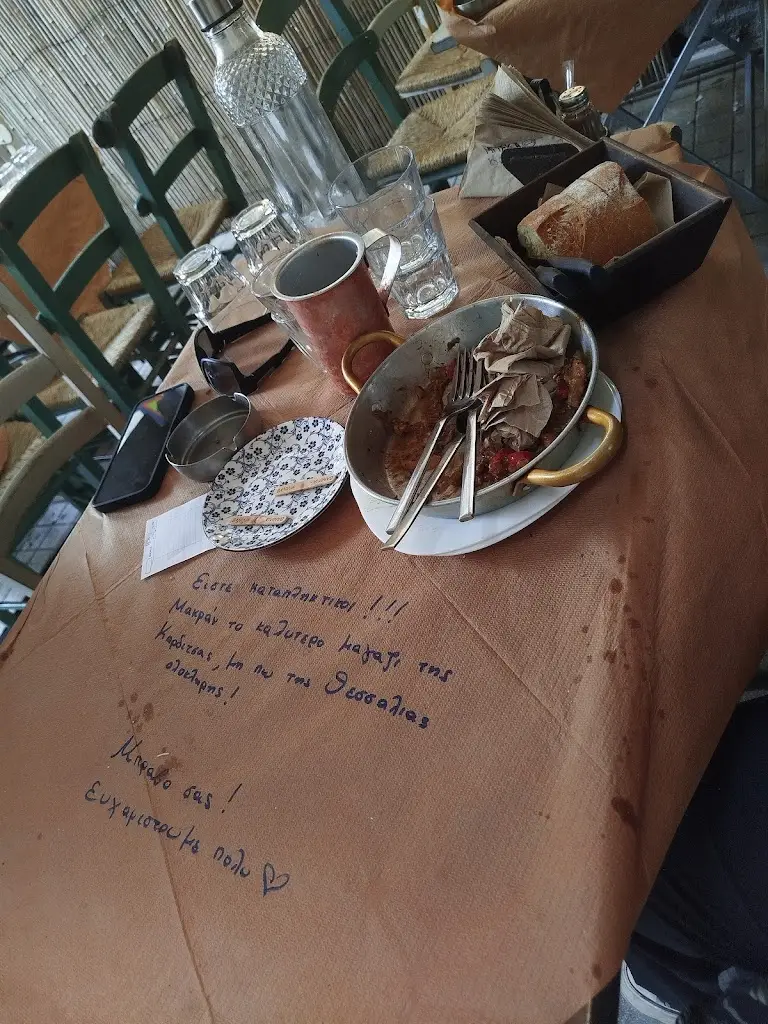 Ειστε καταπληκτικοι!!!
Μακράν το καλυτερο μαγαζι της
Καρδιτσας, μη πω της Θεσσαλιας
ολοκληρης!
Μπράβο σας!
Ευχαριστουμε πολυ ♡